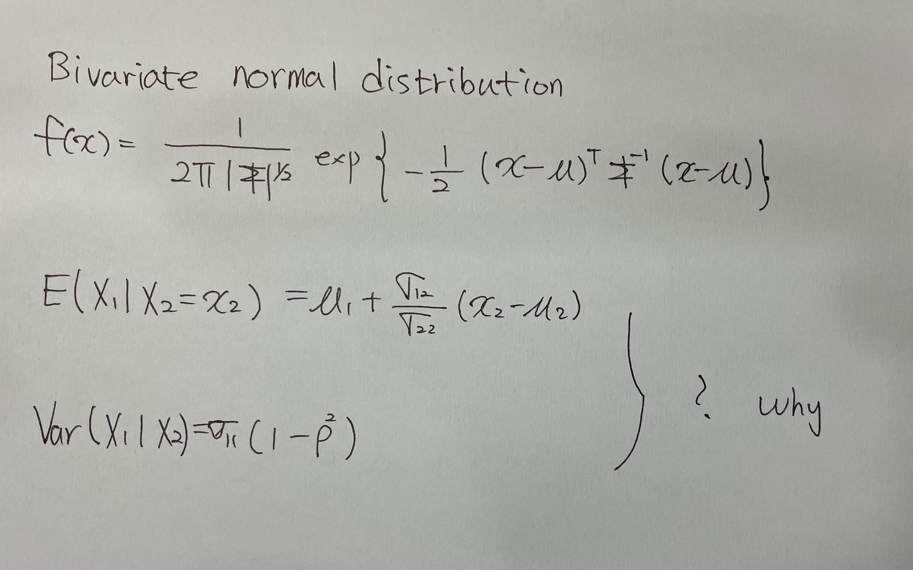 Bivariate normal distribution
f(x) = 1 / 2π |Σ|^1/2 exp { - 1/2 (x-μ)^T Σ^-1 (x-μ) }
E(X₁ | X₂ = x₂) = μ₁ + σ₁₂/σ₂₂ (x₂-μ₂)
Var(X₁ | X₂) = σ₁₁ (1 - ρ²)
? why